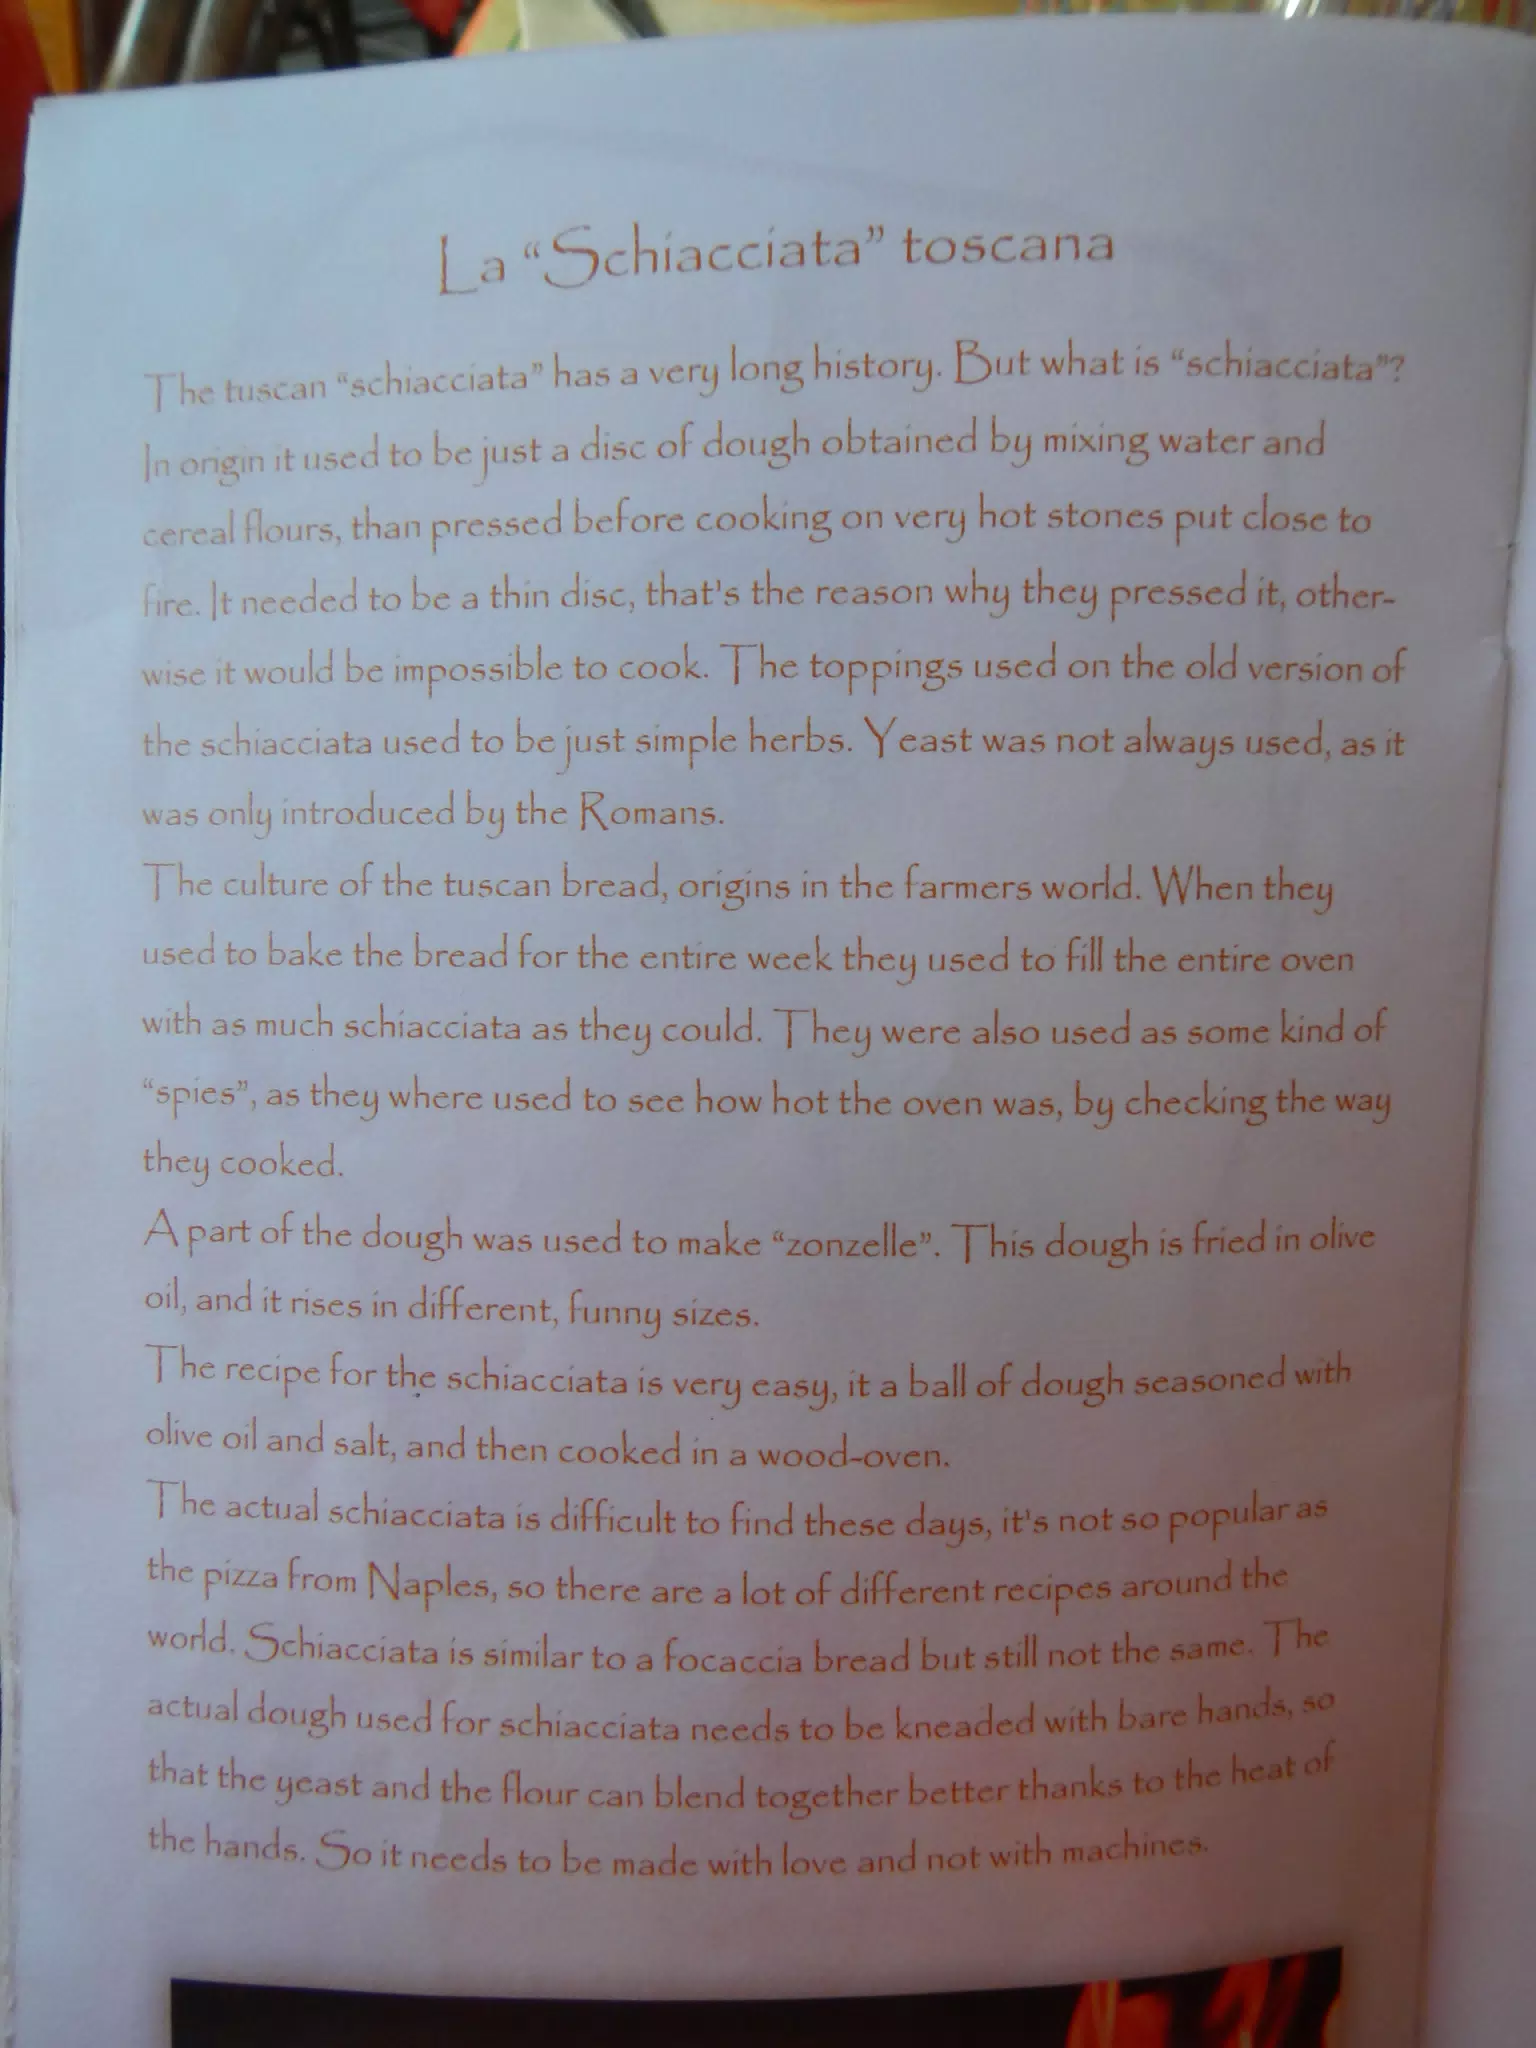 La “Schiacciata” toscana
The tuscan “schiacciata” has a very long history. But what is “schiacciata”?
In origin it used to be just a disc of dough obtained by mixing water and
cereal flours, than pressed before cooking on very hot stones put close to
fire. It needed to be a thin disc, that's the reason why they pressed it, other-
wise it would be impossible to cook. The toppings used on the old version of
the schiacciata used to be just simple herbs. Yeast was not always used, as it
was only introduced by the Romans.
The culture of the tuscan bread, origins in the farmers world. When they
used to bake the bread for the entire week they used to fill the entire oven
with as much schiacciata as they could. They were also used as some kind of
“spies”, as they where used to see how hot the oven was, by checking the way
they cooked.
A part of the dough was used to make “zonzelle”. This dough is fried in olive
oil, and it rises in different, funny sizes.
The recipe for the schiacciata is very easy, it a ball of dough seasoned with
olive oil and salt, and then cooked in a wood-oven.
The actual schiacciata is difficult to find these days, it's not so popular as
the pizza from Naples, so there are a lot of different recipes around the
world. Schiacciata is similar to a focaccia bread but still not the same. The
actual dough used for schiacciata needs to be kneaded with bare hands, so
that the yeast and the flour can blend together better thanks to the heat of
the hands. So it needs to be made with love and not with machines.